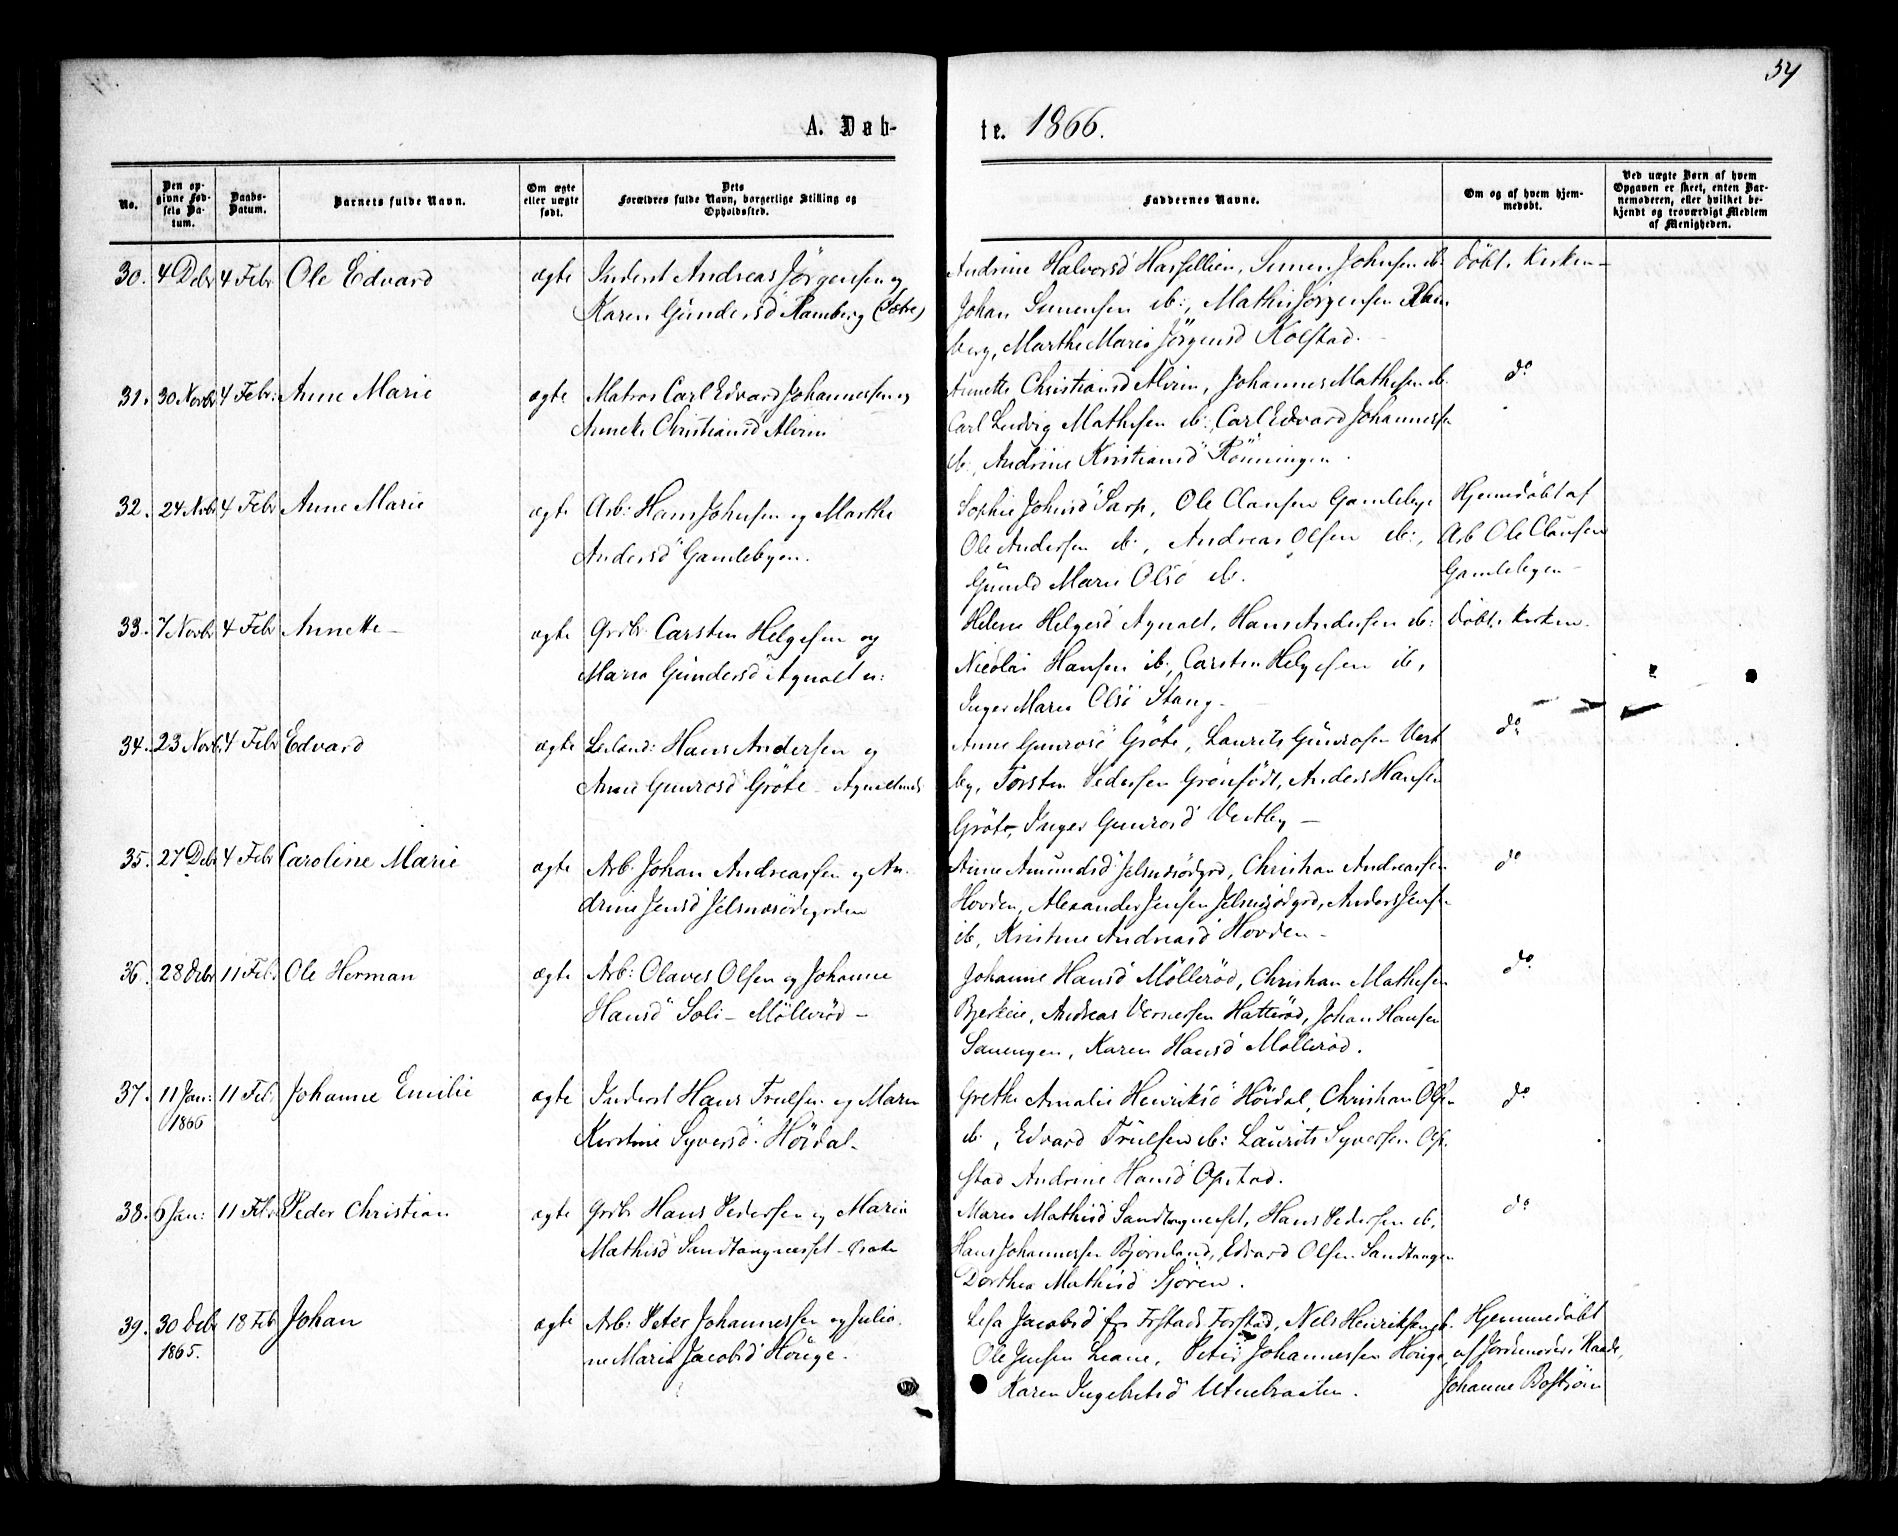 34
A. Døb-
te. 1866.
No.
Den op-
givne Fød-
sels Da-
tum.
Daabs-
Datum.
Barnets fulde Navn.
Om ægte
eller uægte
født.
Dets
Forældres fulde Navn, borgerlige Stilling og
Opholdssted.
Faddernes Navne.
Om og af hvem hjem-
medøbt.
Ved uægte Børn af hvem
Opgaven er skeet, enten Bar-
nemoderen, eller hvilket be-
kjendt og troværdigt Medlem
af Menigheden.
30. 4 Debr 4 Febr Ole Edvard ægte Inderst Andreas Jörgensen og
Karen Gundersd Ramberg
Andrine Halvorsd Simen Johnsen ib.
Johan Simensen ib:, Mathis Jörgensen Ram
berg, Marthe Maria Jörgensd Kolstad.
döbt i Kirken
31. 30 Novbr 4 Febr: Anne Marie ægte Matros Carl Edvard Johannessen og
Annette Christiansd Alvim
Annette Christiansd Alvim, Johannes Mathisen ib.
Carl Ludvig Mathisen ib:, Carl Edvard Johannessen
ib:, Andrine Kristiansd Rönningen.
do
32. 24 Novbr 4 Febr Anne Marie ægte Arb: Hans Johnsen og Marthe
Andersd Gamlebyen.
Sophie Johnsd Sarp, Ole Clausen Gamlebyen
Ole Andersen ib., Andreas Olsen ib:,
Gunild Marie Olsd ib.
Hjemmedöbt af
Arb Ole Clausen
Gamlebyen
33. 7 Novbr 4 Febr Annette ægte Grdbr Carsten Helgesen og
Maria Gundersd Agnalt
Helene Helgesd Agnalt, Hans Andersen ib:
Nicolai Hansen ib., Carsten Helgesen ib,
Inger Maria Olsd Stang
döbt i Kirken.
34. 23 Novbr 4 Febr Edvard ægte Hans Andersen og
Anne Gunrosd Gröte
Anne Gunrosd Gröte, Laurits Gunrosen Vest
by, Torsten Pedersen Grönsödt, Anders Hansen
Gröte, Inger Gunrosd Vestby
do
35. 27 Debr 4 Febr Caroline Marie ægte Arb: Johan Andreassen og An-
drine Jensd
Anne Amundsd Christian Andreassen
Hovden, Alexander Jensen Anders Jensen
ib, Kristine Andreasd Hovden
do
36. 28 Debr 11 Febr. Ole Herman ægte Arb: Olaves Olsen og Johanne
Hansd Soli - Mölleröd
Johanne Hansd Mölleröd, Christian Mathisen
Andreas Vernersen Hatteröd, Johan Hansen
Karen Hansd Mölleröd.
do
37. 11 Jan: 11 Feb. Johanne Emilie ægte Inderst Hans Trulsen og Maren
1866
Kirstine Syversd. Höidal
Grethe Amalie Henriksd Höidal, Christian Olsen
ib., Edvard Trulsen ib: Laurits Syversen Op-
stad Andrine Hansd Opstad.
do
38. 6 Jan: 11 Febr Peder Christian ægte Grdbr Hans Pedersen og Maria
Mathisd Sandtangnæsset
Maria Mathisd Sandtangnæsset, Hans Pedersen ib.
Hans Johannessen Björnland, Edvard Olsen Sandtangen
Dorthea Mathisd Sjören.
do
39. 30 Debr 18 Feb Johan ægte Arb: Peter Johannessen og Julia-
1865.
ne Maria Jacobsd Hauge.
Lisa Jacobsd Forstad, Nels Henriksen
Ole Jensen Leane, Peter Johannessen Hauge,
Karen Ingebretsd
Hjemmedöbt
af Jordemoder i Raade,
Johanne Boström